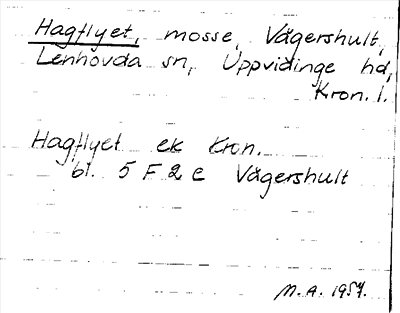 Hagflyet, mosse, Vägershult,
Lenhovda sn, Uppvidinge hd,
Kron. l.
Hagflyet ek Kron.
bl. 5 F 2 e Vägershult
M.A. 1957.